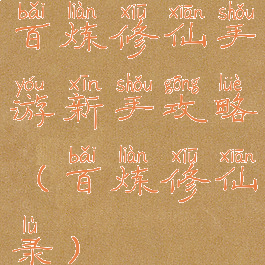 bǎi liàn xiū xiān shǒu
百炼修仙手
yóu xīn shǒu gōng lüè
游新手攻略
bǎi liàn xiū xiān
（百炼修仙
lù
录）